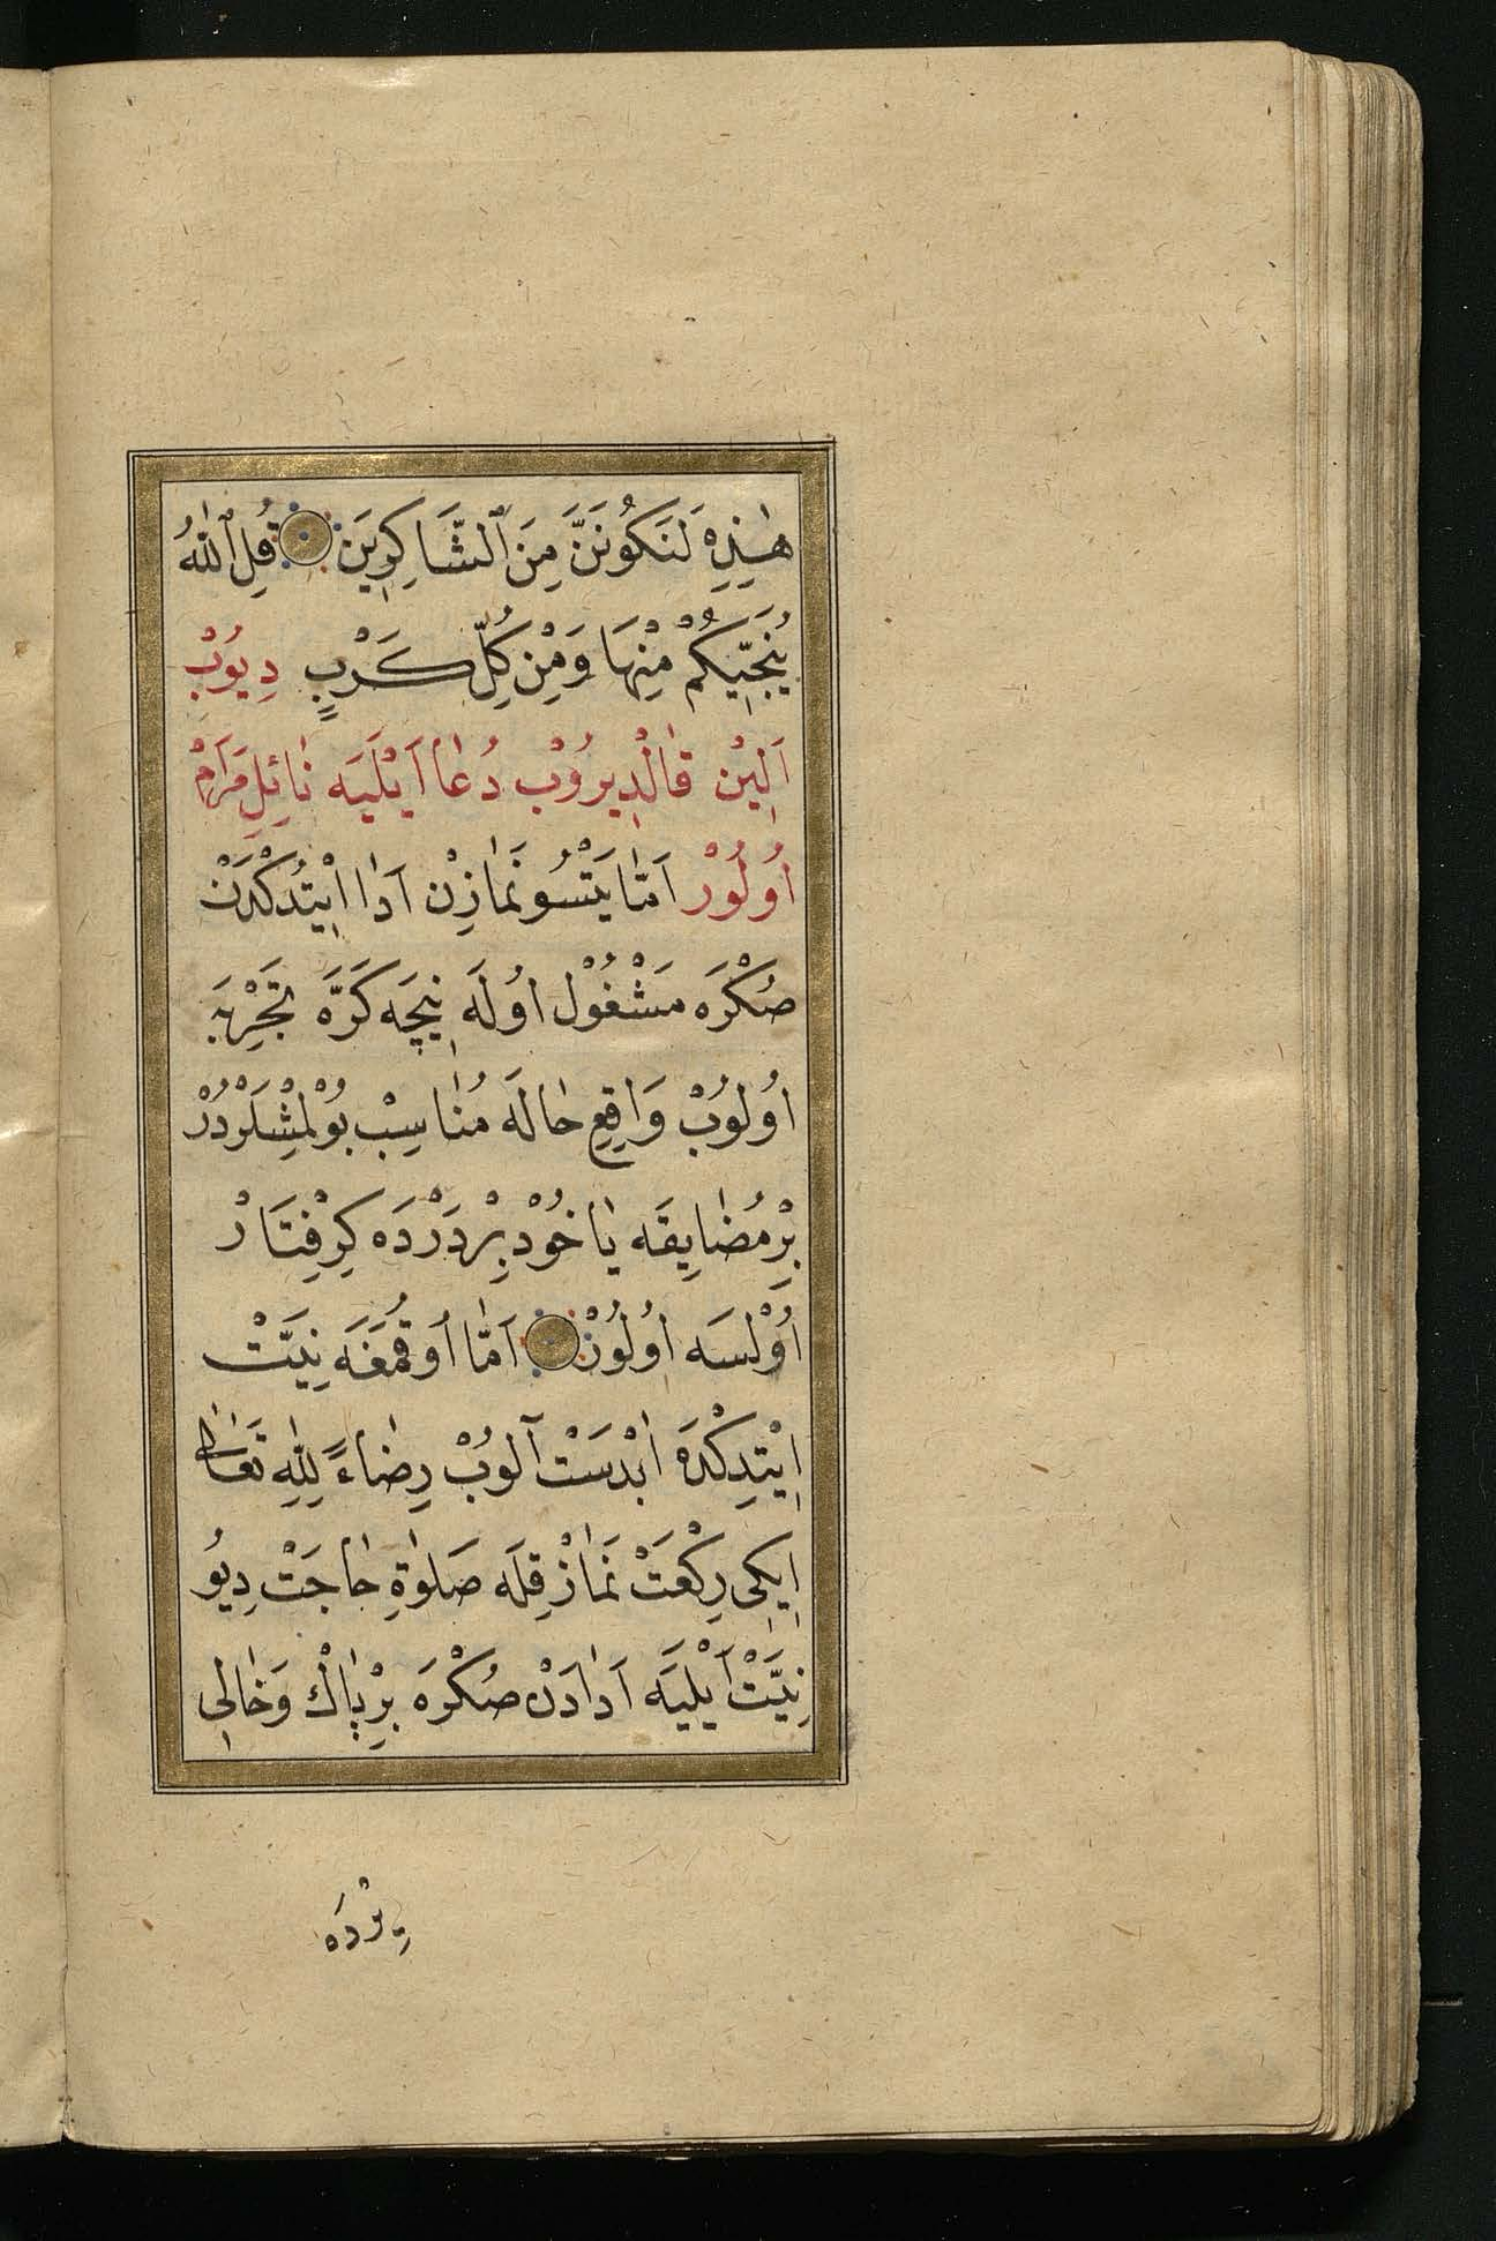 هٰذِهِ لَنَكُونَنَّ مِنَ ٱلشَّاكِرِينَ قُلِ ٱللّٰهُ
يُنَجِّيكُمْ مِنْهَا وَمِنْ كُلِّ كَرْبٍ دِيُوبْ
اَلِينْ قَالْدِيرُوبْ دُعَا اَيْلَيَه نَائِلِ مَرَامْ
اُولُورْ اَمَّا يَتْسُو نَمَازِنْ اَدَا اِيْتْدُكْدَنْ
صُكْرَه مَشْغُولْ اُولَه نِيچَه كَرَّه تَجْرِبَه
اُولُوبْ وَاقِعِ حَالَه مُنَاسِبْ بُولْمِشْلَرْدُرْ
بِرْ مُضَايِقَه يَاخُودْ بِرْ دَرْدَه كِرِفْتَارْ
اُوْلْسَه اُولُونْ اَمَّا اُوقُمَغَه نِيَّتْ
اِيْتِدِكْدَه اَبْدَسْتْ آلُوبْ رِضَاءً لِلّٰهِ تَعَالٰى
اِيكِى رِكْعَتْ نَمَازْ قِلَه صَلٰوةِ حَاجَتْ دِيُو
نِيَّتْ اَيْلَيَه اَدَادَنْ صُكْرَه بِرْ پَاكْ وَخَالِى
يِرْدَه